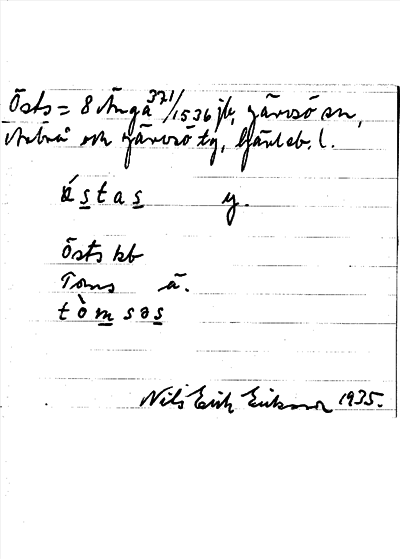 Östs = 8 Änga 371/1536 jb, Järvsö sn,
Arbrå och Järvsö tg, Gävleb. l.
ɷ́ s t a s y.
Östs kb
Toms ä.
t ò m s ə s
Nils Erik Eriksson 1935.